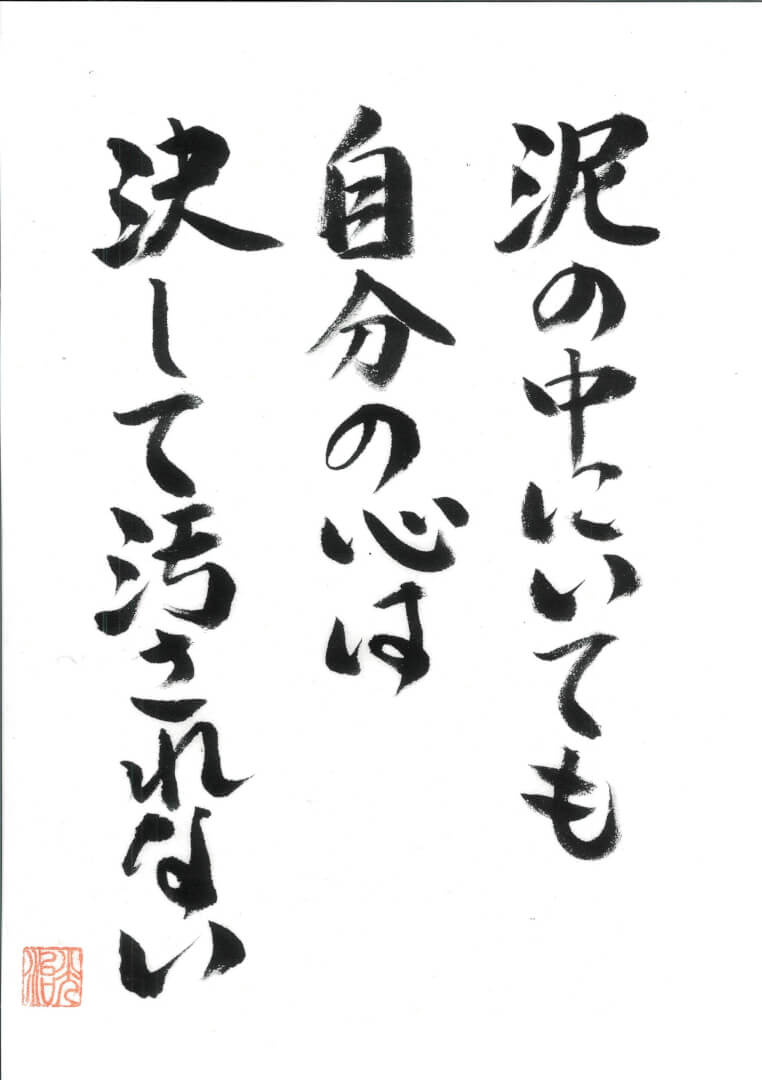 泥の中にいても
自分の心は
決して汚されない